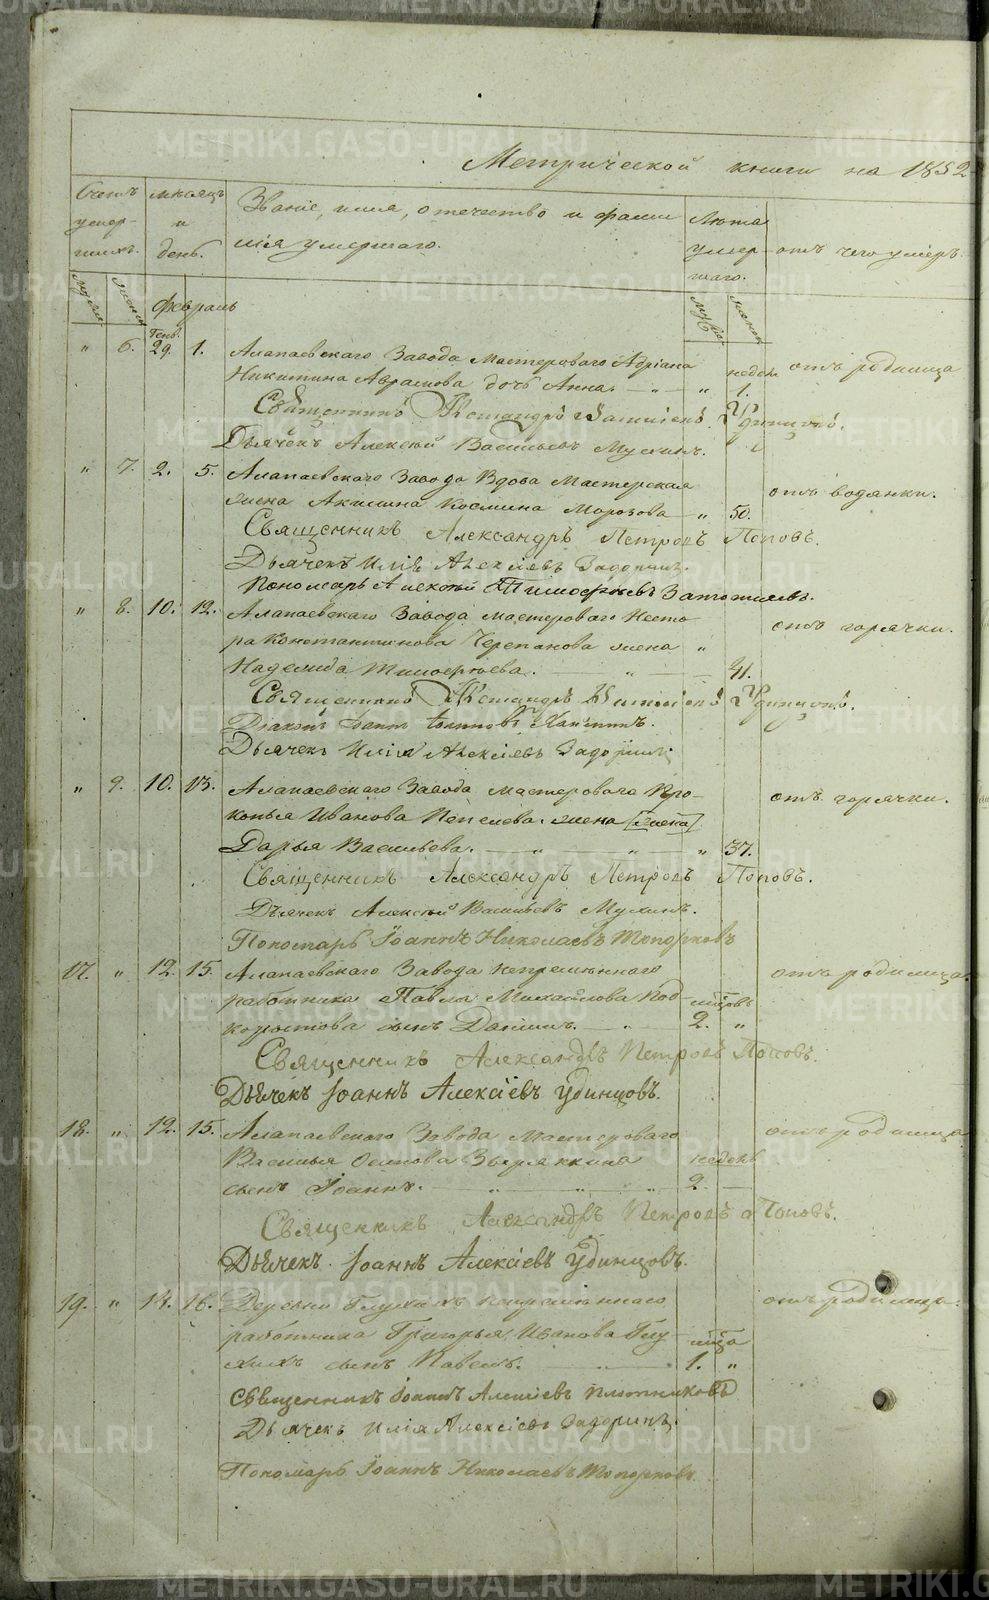 Метрической книги на 1852
Счетъ умер-шихъ.
мѣсяцъ и день.
Званіе, имя, отечество и фами-
лія умершаго.
Лѣта умер-шаго.
отъ чего умеръ.
муж. женск.
Февраль
муж. женск.
" 6. Генв. 29. 1. Алапаевскаго Завода Мастероваго Адріана
Никитина Абрамова дочь Анна. — " — " недѣл. 1. отъ родимца
Священникъ Удинцовъ.
Дьячекъ Алексѣй Васильевъ Мухинъ.
" 7. 2. 5. Алапаевскаго Завода Вдова Мастерская
жена Акилина Космина Морозова — " 50. отъ водянки.
Священникъ Александръ Петровъ Поповъ.
Дьячекъ Илія Алексѣевъ Задоринъ.
Пономарь Алексѣй Тимофѣевъ
" 8. 10. 12. Алапаевскаго Завода мастероваго Несто-
ра Константинова Черепанова жена " отъ горячки.
Надежда Тимофеева. — " — 41.
Священникъ Удинцовъ.
Діаконъ
Дьячекъ Илія Алексѣевъ Задоринъ
" 9. 10. 13. Алапаевскаго Завода мастероваго Про-
копья Иванова Пепелева жена [жена] отъ горячки.
Дарья Васильева. — " — " — " 37.
Священникъ Александръ Петровъ Поповъ.
Дьячекъ Алексѣй Васильевъ Мухинъ.
Пономарь Іоаннъ Николаевъ Топорковъ
17. " 12. 15. Алапаевскаго Завода непремѣннаго
работника Павла Михайлова Под-
коростова сынъ Даніилъ. — " — мѣсяцовъ 2. " отъ родимца.
Священникъ Александръ Петровъ Поповъ.
Дьячекъ Іоаннъ Алексіевъ Удинцовъ.
18. " 12. 15. Алапаевскаго Завода Мастероваго
Василья Осипова Зырянкина
сынъ Іоаннъ. — " — " — " недѣль 2. — отъ родимца
Священникъ Александръ Петровъ Поповъ.
Дьячекъ Іоаннъ Алексіевъ Удинцовъ.
19. " 14. 16. Деревни Глухихъ непремѣннаго
работника Григорья Иванова Глу-
хихъ сынъ Павелъ. — " — мѣсяца 1. " отъ родимца.
Священникъ Іоаннъ Алексіевъ Плотниковъ
Дьячекъ Илія Алексіевъ Задоринъ.
Пономарь Іоаннъ Николаевъ Топорковъ
METRIKI.GASO-URAL.RU